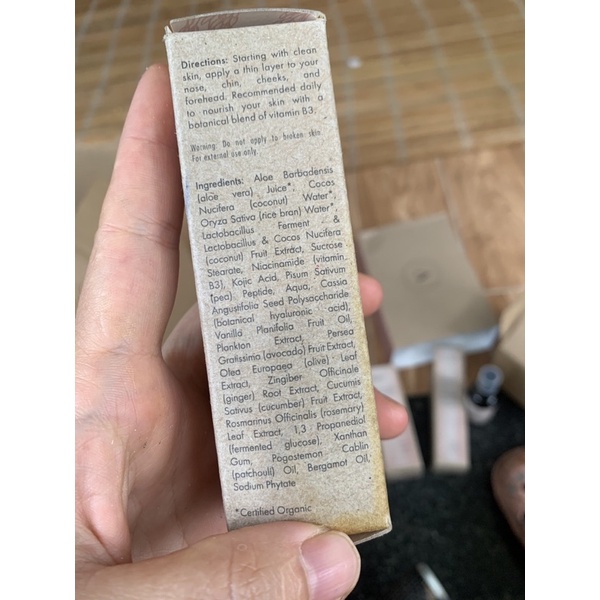 Directions: Starting with clean
skin, apply a thin layer to your
nose, chin, cheeks, and
forehead. Recommended daily
to nourish your skin with a
botanical blend of vitamin B3.
Warning: Do not apply to broken skin
For external use only.
Ingredients: Aloe Barbadensis
(aloe vera) Juice*, Cocos
Nucifera (coconut) Water*,
Oryza Sativa (rice bran) Water*,
Lactobacillus Ferment &
Lactobacillus & Cocos Nucifera
(coconut) Fruit Extract, Sucrose
Stearate, Niacinamide (vitamin
B3), Kojic Acid, Pisum Sativum
(pea) Peptide, Aqua, Cassia
Angustifolia Seed Polysaccharide
(botanical hyaluronic acid),
Vanilla Planifolia Fruit Oil,
Plankton Extract, Persea
Gratissima (avocado) Fruit Extract,
Olea Europaea (olive) Leaf
Extract, Zingiber Officinale
(ginger) Root Extract, Cucumis
Sativus (cucumber) Fruit Extract,
Rosmarinus Officinalis (rosemary)
Leaf Extract, 1,3 Propanediol
(fermented glucose), Xanthan
Gum, Pogostemon Cablin
(patchouli) Oil, Bergamot Oil,
Sodium Phytate
*Certified Organic